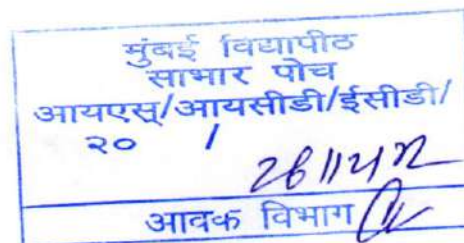 मुंबई विद्यापीठ
साभार पोच
आयएस/आयसीडी/ईसीडी/
२० /
आवक विभाग